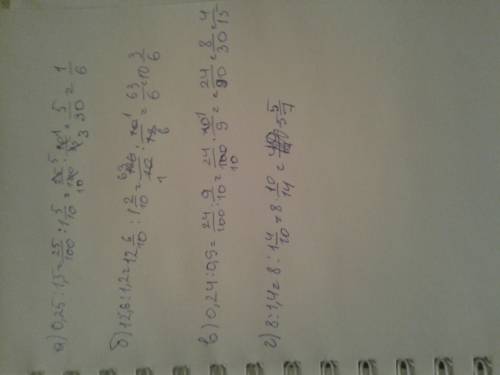 а) 0,25 : 1,5 = 25/100 : 1 5/10 = 25 5/100 10 · 10 1/15 3 = 5/30 = 1/6
б) 12,6 : 1,2 = 12 6/10 : 1 2/10 = 126 63/10 1 : 10 1/12 6 = 63/6 = 10 3/6
в) 0,24 : 0,9 = 24/100 : 9/10 = 24/100 10 · 10 1/9 = 24/90 = 8/30 = 4/15
г) 8 : 1,4 = 8 : 1 4/10 = 8 · 10/14 = 5 5/7